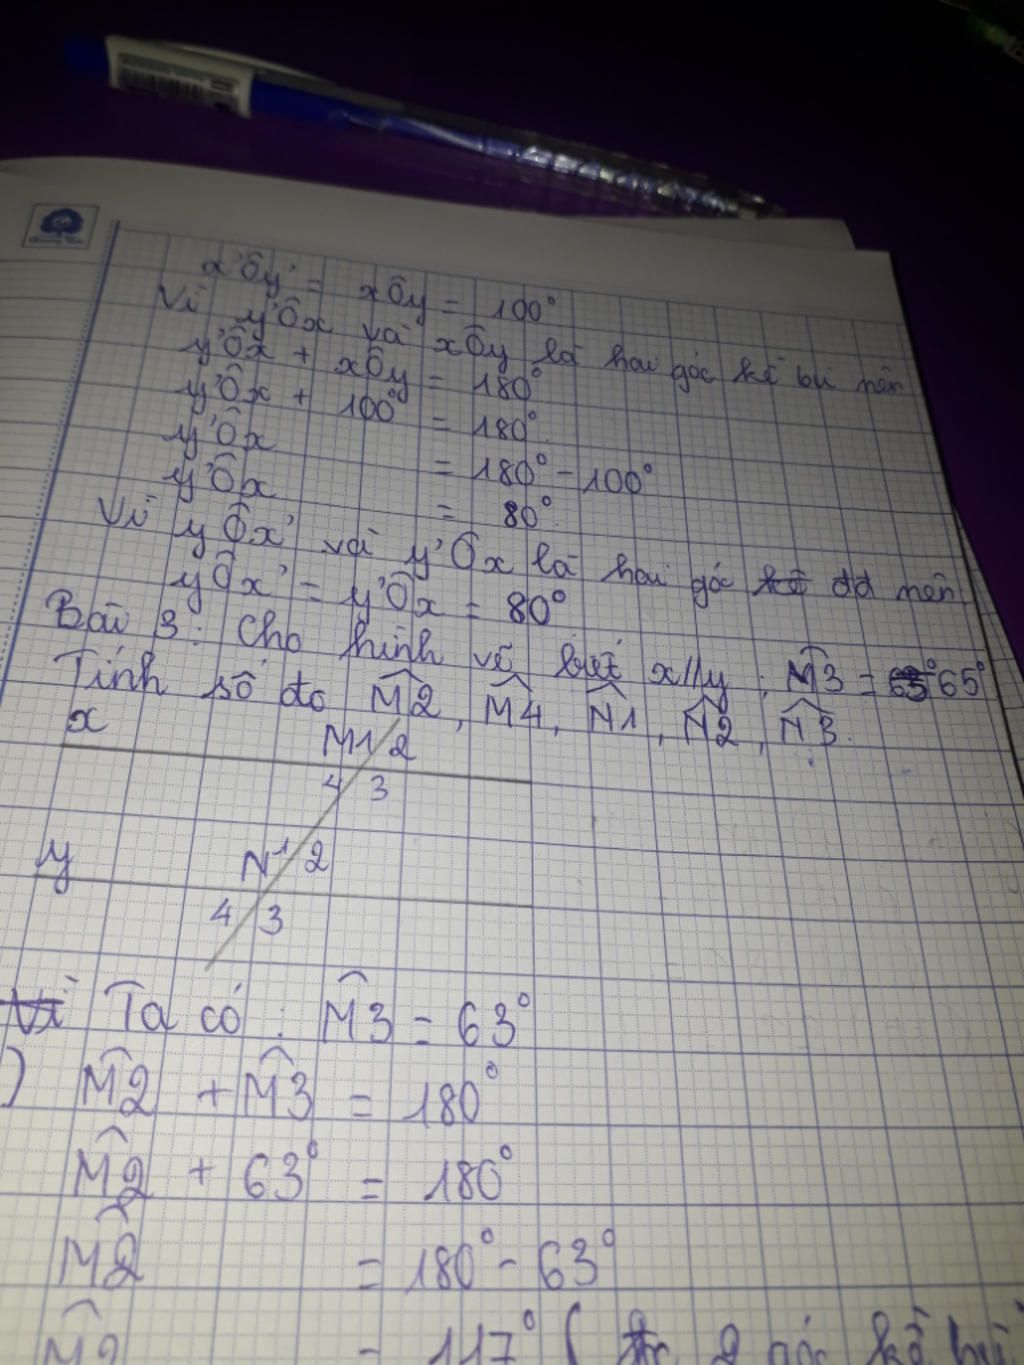 x'Ôy' = xÔy = 100°
Vì y'Ôx và xÔy là hai góc kề bù nên
y'Ôx + xÔy = 180°
y'Ôx + 100° = 180°
y'Ôx = 180° - 100°
y'Ôx = 80°
Vì yÔx' và y'Ôx là hai góc kề đđ nên
yÔx' = y'Ôx = 80°
Bài 3: Cho hình vẽ biết x//y; M̂3 = 65°
Tính số đo M̂2, M̂4, N̂1, N̂2, N̂3.
x
M 1 2
4 3
y
N 1 2
4 3
Vì Ta có: M̂3 = 63°
) M̂2 + M̂3 = 180°
M̂2 + 63° = 180°
M̂2 = 180° - 63°
M̂2 = 117° ( 2 góc kề bù